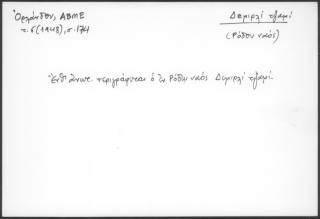 Ὀρλάνδου, ΑΒΜΕ
τ. 6 (1948), σ. 174
Δεμιρλί τζαμί
(Ρόδου ναός)
Ἔνθ' ἀνωτ. περιγράφεται ὁ ἐν Ρόδῳ ναός Δεμιρλί τζαμί.